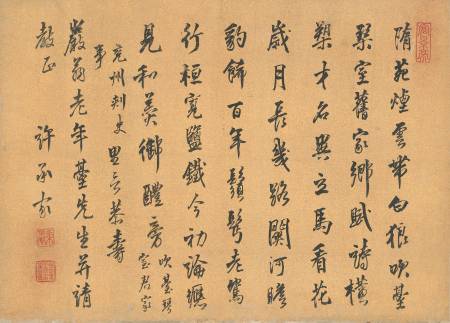 隋苑煙雲帶白狼吹臺
琴室舊家鄉賦詩橫
槊才名異立馬看花
歲月長幾路關河瞻
豹餙百年鬚髩老鴛
行桓寬鹽鐵今初論
見和羹御醴旁
吹臺琴
室君家
兗州刺史
事
里言恭壽
嚴翁老年臺先生并請
教正
許承家